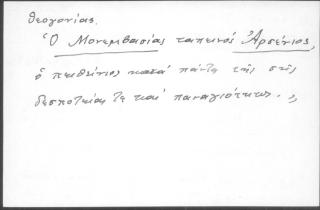 θεογονίας.
"Ὁ Μονεμβασίας ταπεινὸς Ἀρσένιος,
ὁ πειθήνιος κατὰ πάντα τῆς σῆς
δεσποτείας τε καὶ παναγιότητος.",